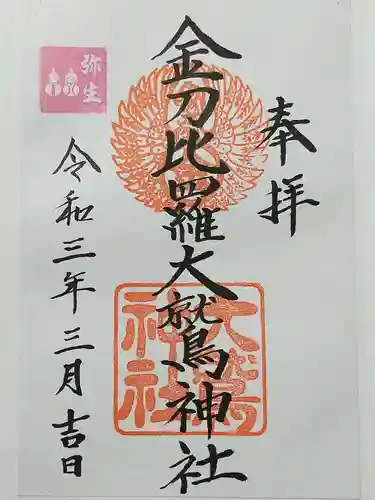 奉拝
金刀比羅大鷲鳥神社
令和三年三月吉日
弥生
大鷲
神社